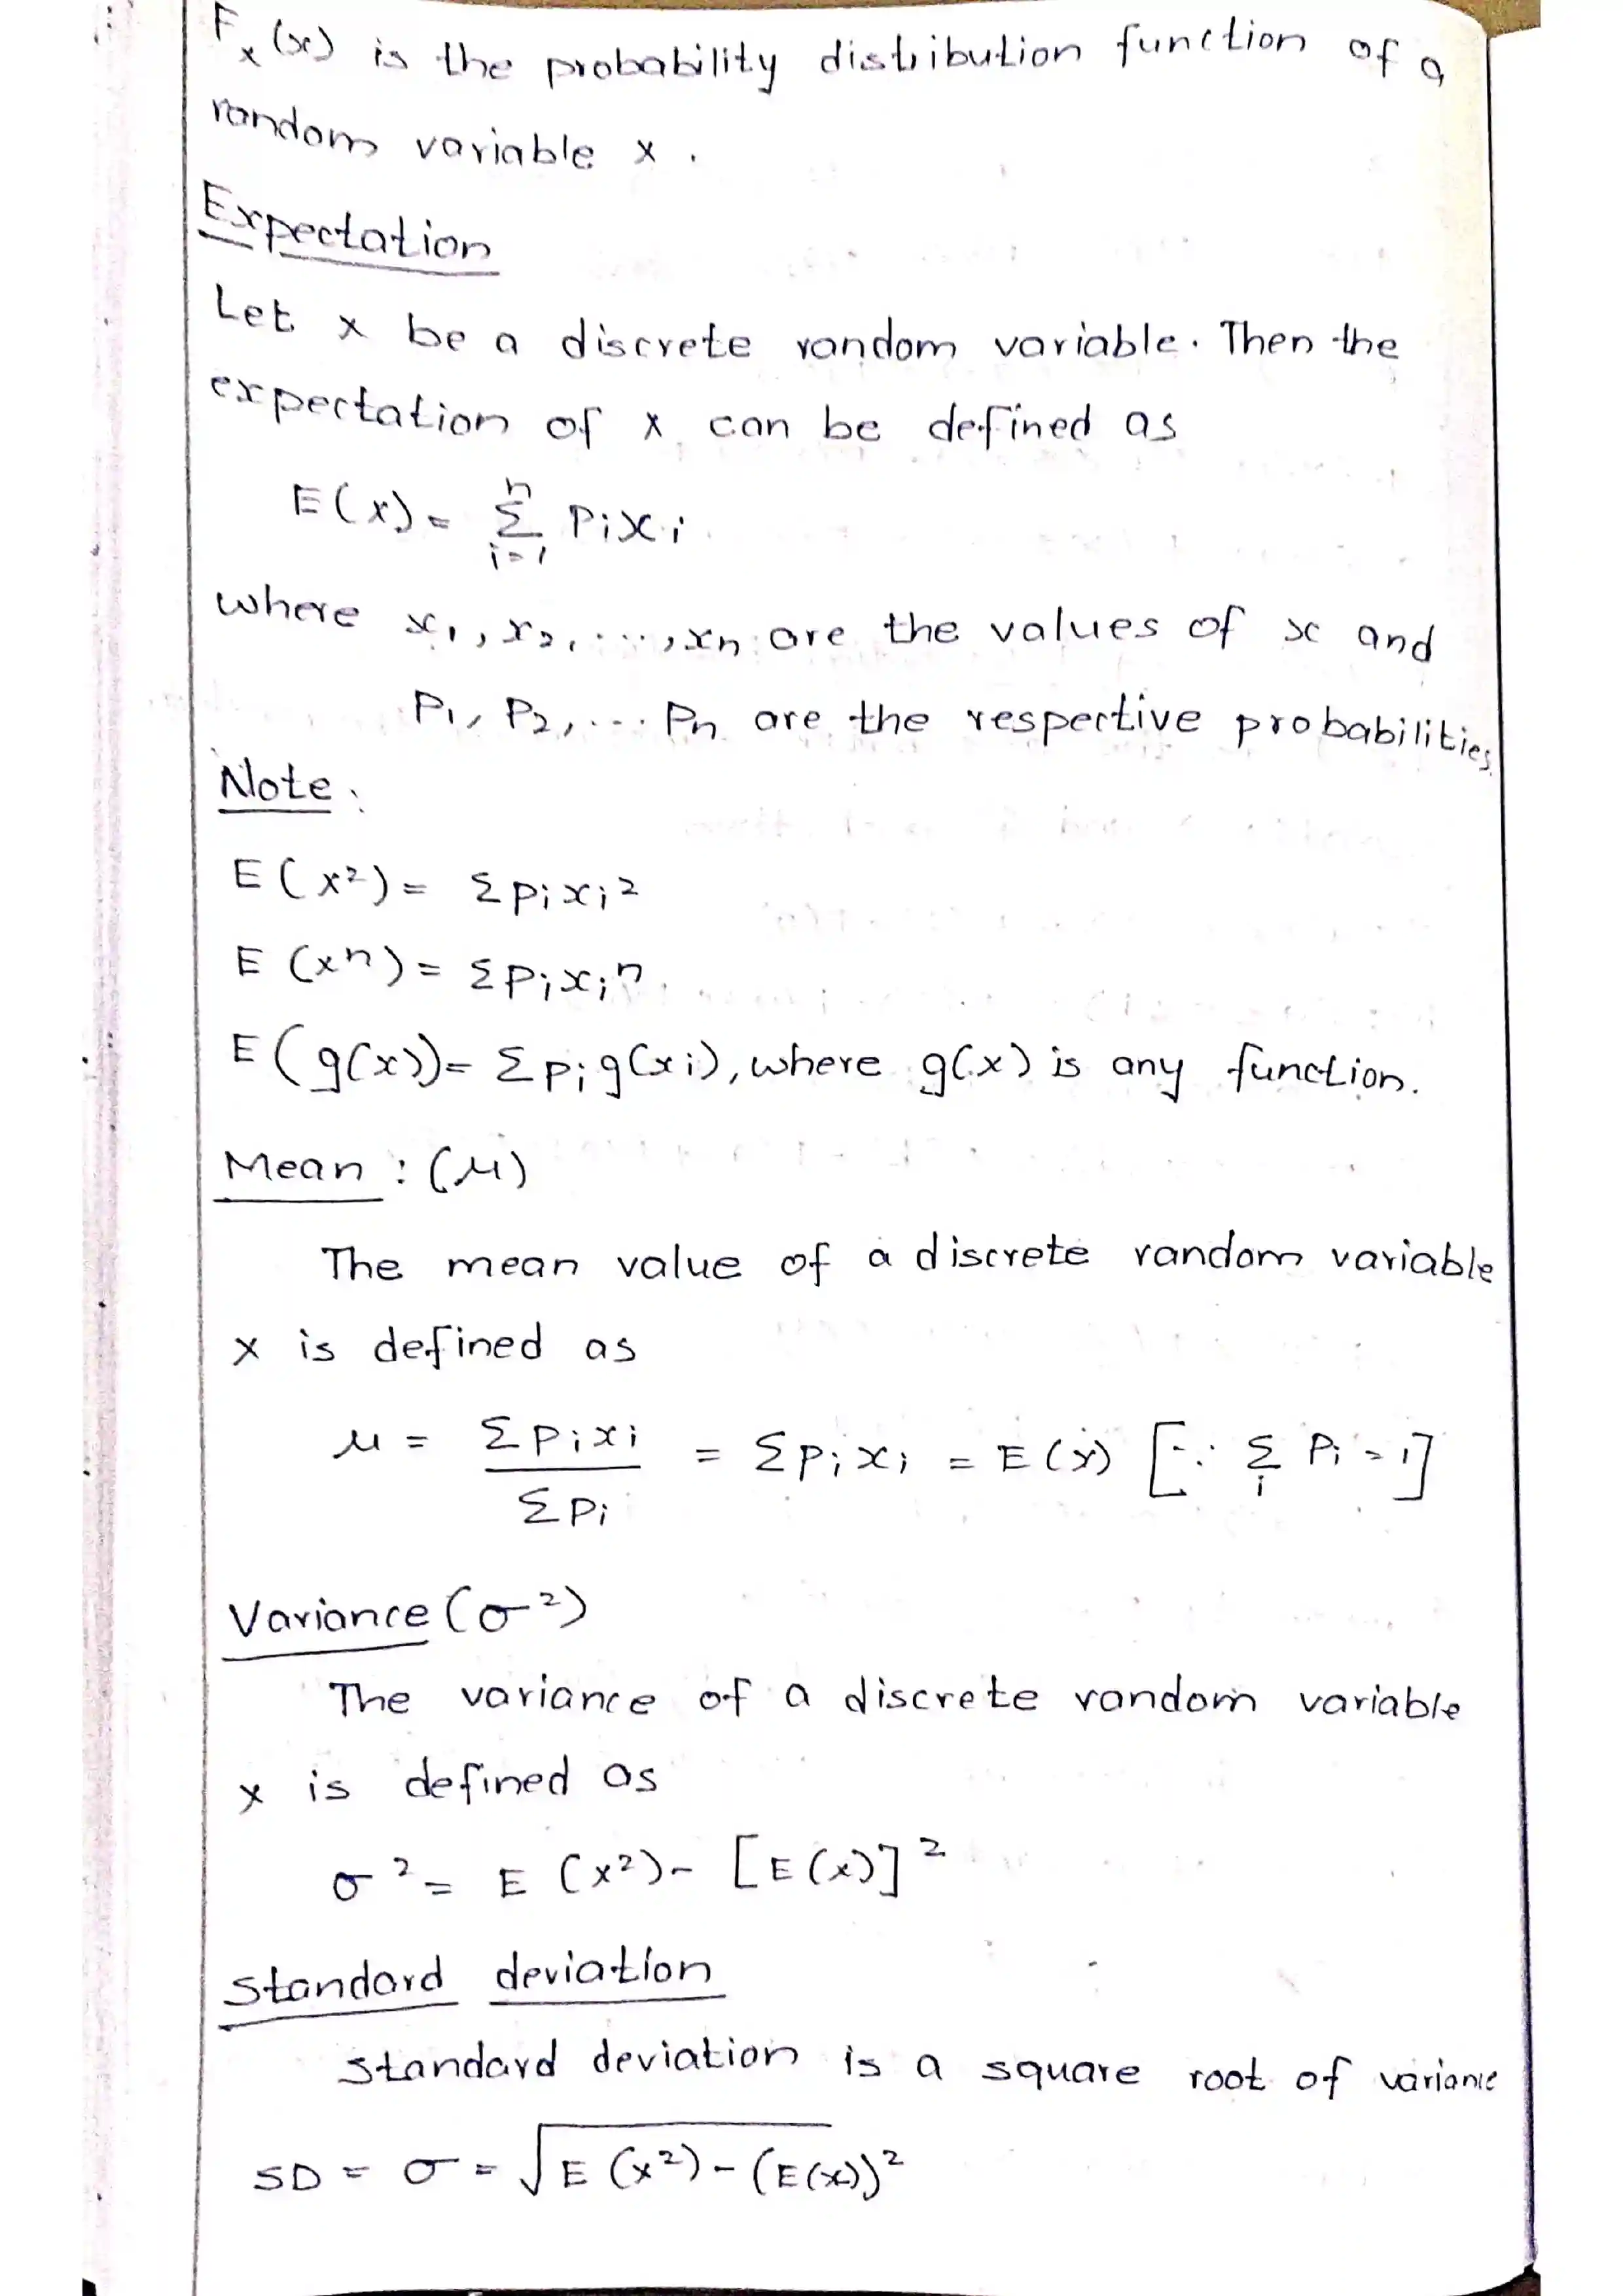 Fx(x) is the probability distribution function of a
random variable x.
Expectation
Let x be a discrete random variable. Then the
expectation of x can be defined as
E(x) = n Σ i=1 Pixi
where x1, x2, ..., xn are the values of x and
P1, P2, ... Pn are the respective probabilities
Note:
E(x²) = Σpixi²
E(xⁿ) = Σpixiⁿ.
E(g(x)) = Σpig(xi), where g(x) is any function.
Mean: (μ)
The mean value of a discrete random variable
x is defined as
μ = Σpixi / Σpi = Σpixi = E(x) [∵ Σi Pi = 1]
Variance (σ²)
The variance of a discrete random variable
x is defined as
σ² = E(x²) - [E(x)]²
Standard deviation
Standard deviation is a square root of variance
SD = σ = √E(x²) - (E(x))²